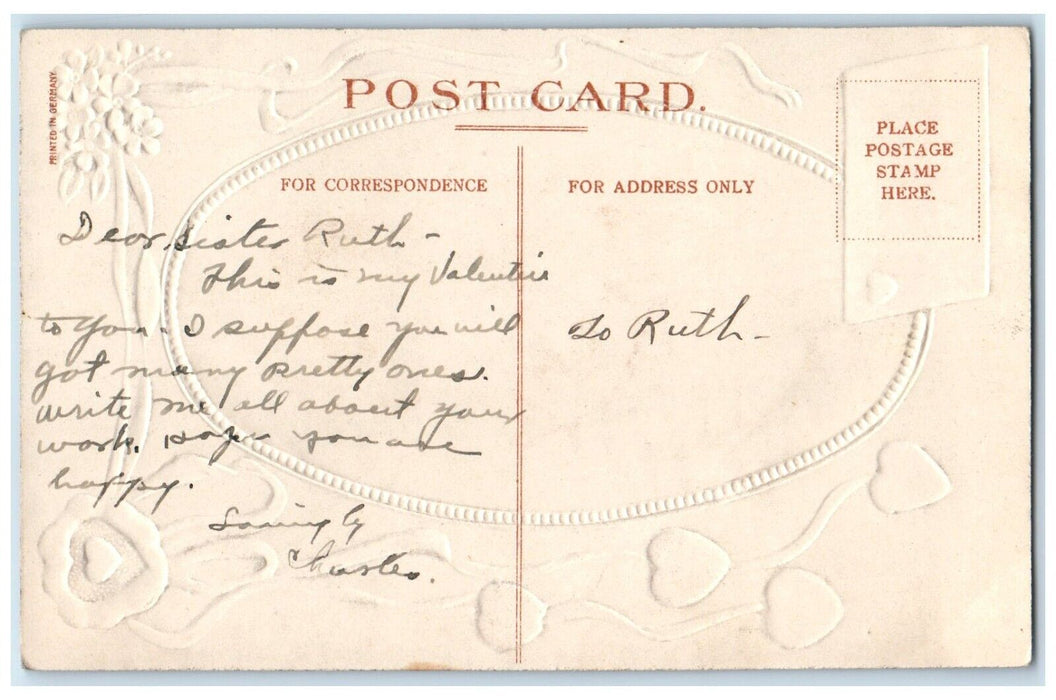 PRINTED IN GERMANY
POST CARD.
FOR CORRESPONDENCE
FOR ADDRESS ONLY
PLACE
POSTAGE
STAMP
HERE.
Dear sister Ruth -
This is my Valentine
to you - I suppose you will
got many pretty ones.
write me all about your
work. hope you are
happy.
Lovingly
Charles.
To Ruth -